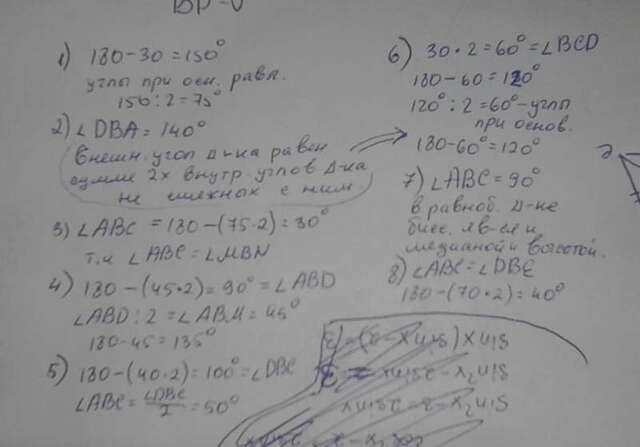 1) 180-30=150°
углы при осн. равы.
150:2=75°
2) ∠DBA=140°
Внешн. угол Δ-ка равен
сумме 2х внутр. углов Δ-ка
не смежных с ним
3) ∠ABC = 180-(75·2)=30°
т.к ∠ABC=∠MBN
4) 180-(45·2)=90°=∠ABD
∠ABD:2=∠ABM=45°
180-45=135°
5) 180-(40·2)=100°=∠DBC
∠ABC=∠DBC/2=50°
6) 30·2=60°=∠BCD
180-60=120°
120°:2=60°-углы
при основ.
180-60°=120°
7) ∠ABC=90°
в равноб. Δ-ке
бисс. яв-ся и
медианой и высотой.
8) ∠ABC=∠DBE
180-(70·2)=40°